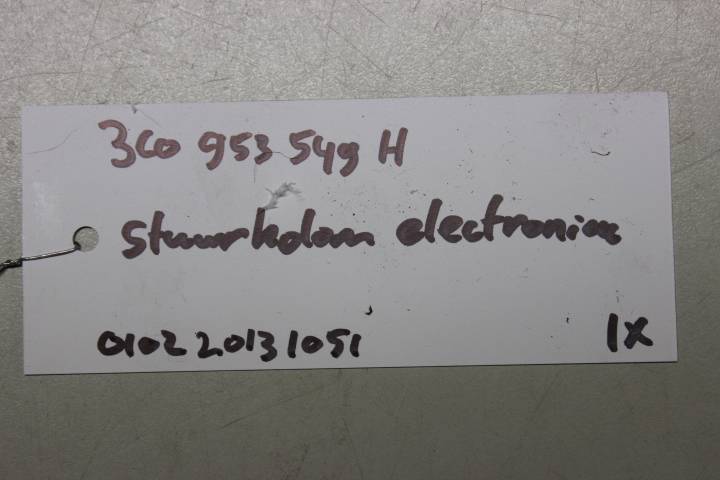 3C0 953 549 H
stuurkolom electronica
010220131051
1X